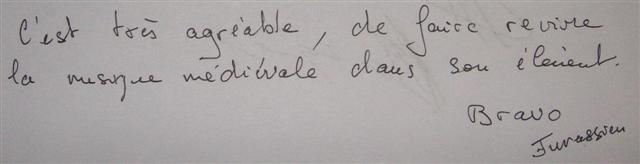 C'est très agréable, de faire revivre
la musique médiévale dans son élément.
Bravo
Jurassien